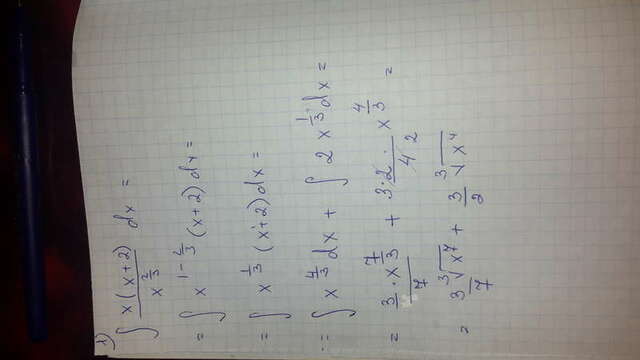 1) ∫ x(x+2)/x^(2/3) dx =
= ∫ x^(1-2/3) (x+2) dx =
= ∫ x^(1/3) (x+2) dx =
= ∫ x^(4/3) dx + ∫ 2 x^(1/3) dx =
= 3/7 · x^(7/3) + 3·2/4 2 · x^(4/3) =
= 3 ∛x⁷/7 + 3/2 ∛x⁴